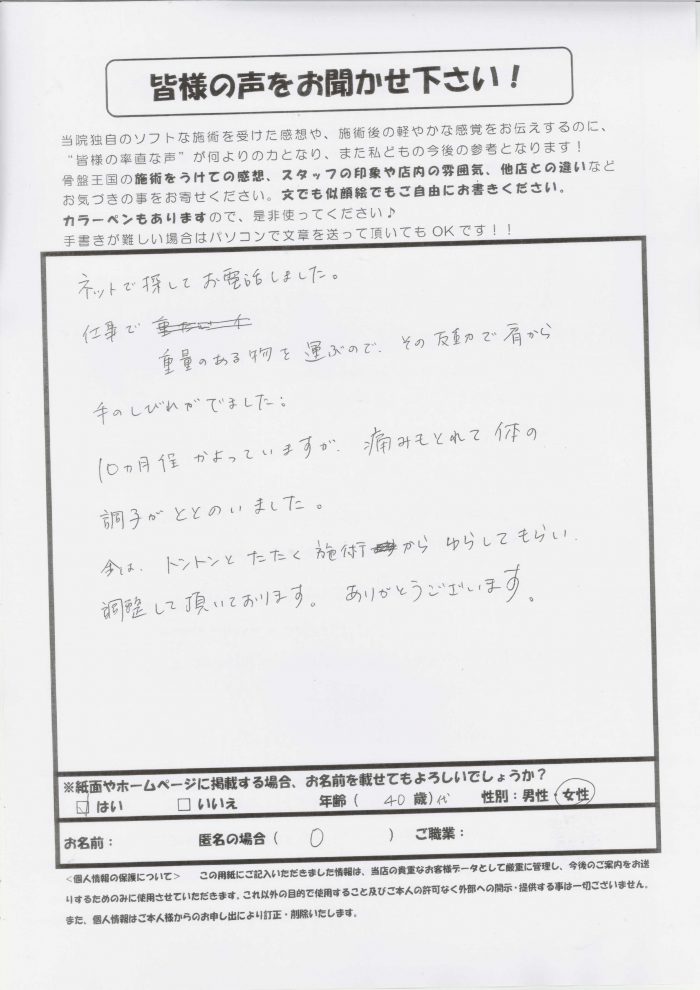 皆様の声をお聞かせ下さい！
当院独自のソフトな施術を受けた感想や、施術後の軽やかな感覚をお伝えするのに、
“皆様の率直な声”が何よりの力となり、また私どもの今後の参考となります！
骨盤王国の施術をうけての感想、スタッフの印象や店内の雰囲気、他店との違いなど
お気づきの事をお寄せください。文でも似顔絵でもご自由にお書きください。
カラーペンもありますので、是非使ってください♪
手書きが難しい場合はパソコンで文章を送って頂いてもOKです！！
ネットで探してお電話しました。
仕事で
重量のある物を運ぶので、その反動で肩から
手のしびれがでました。
10カ月程かよっていますが、痛みもとれて体の
調子がととのいました。
今は、トントンとたたく施術からゆらしてもらい、
調整して頂いております。ありがとうございます。
※紙面やホームページに掲載する場合、お名前を載せてもよろしいでしょうか？
☑ はい □ いいえ 年齢（ 40 歳）代 性別：男性・女性
お名前： 匿名の場合（ 〇 ） ご職業：
＜個人情報の保護について＞ この用紙にご記入いただきました情報は、当店の貴重なお客様データとして厳重に管理し、今後のご案内をお送
りするためのみに使用させていただきます。これ以外の目的で使用すること及びご本人の許可なく外部への開示・提供する事は一切ございません。
また、個人情報はご本人様からのお申し出により訂正・削除いたします。